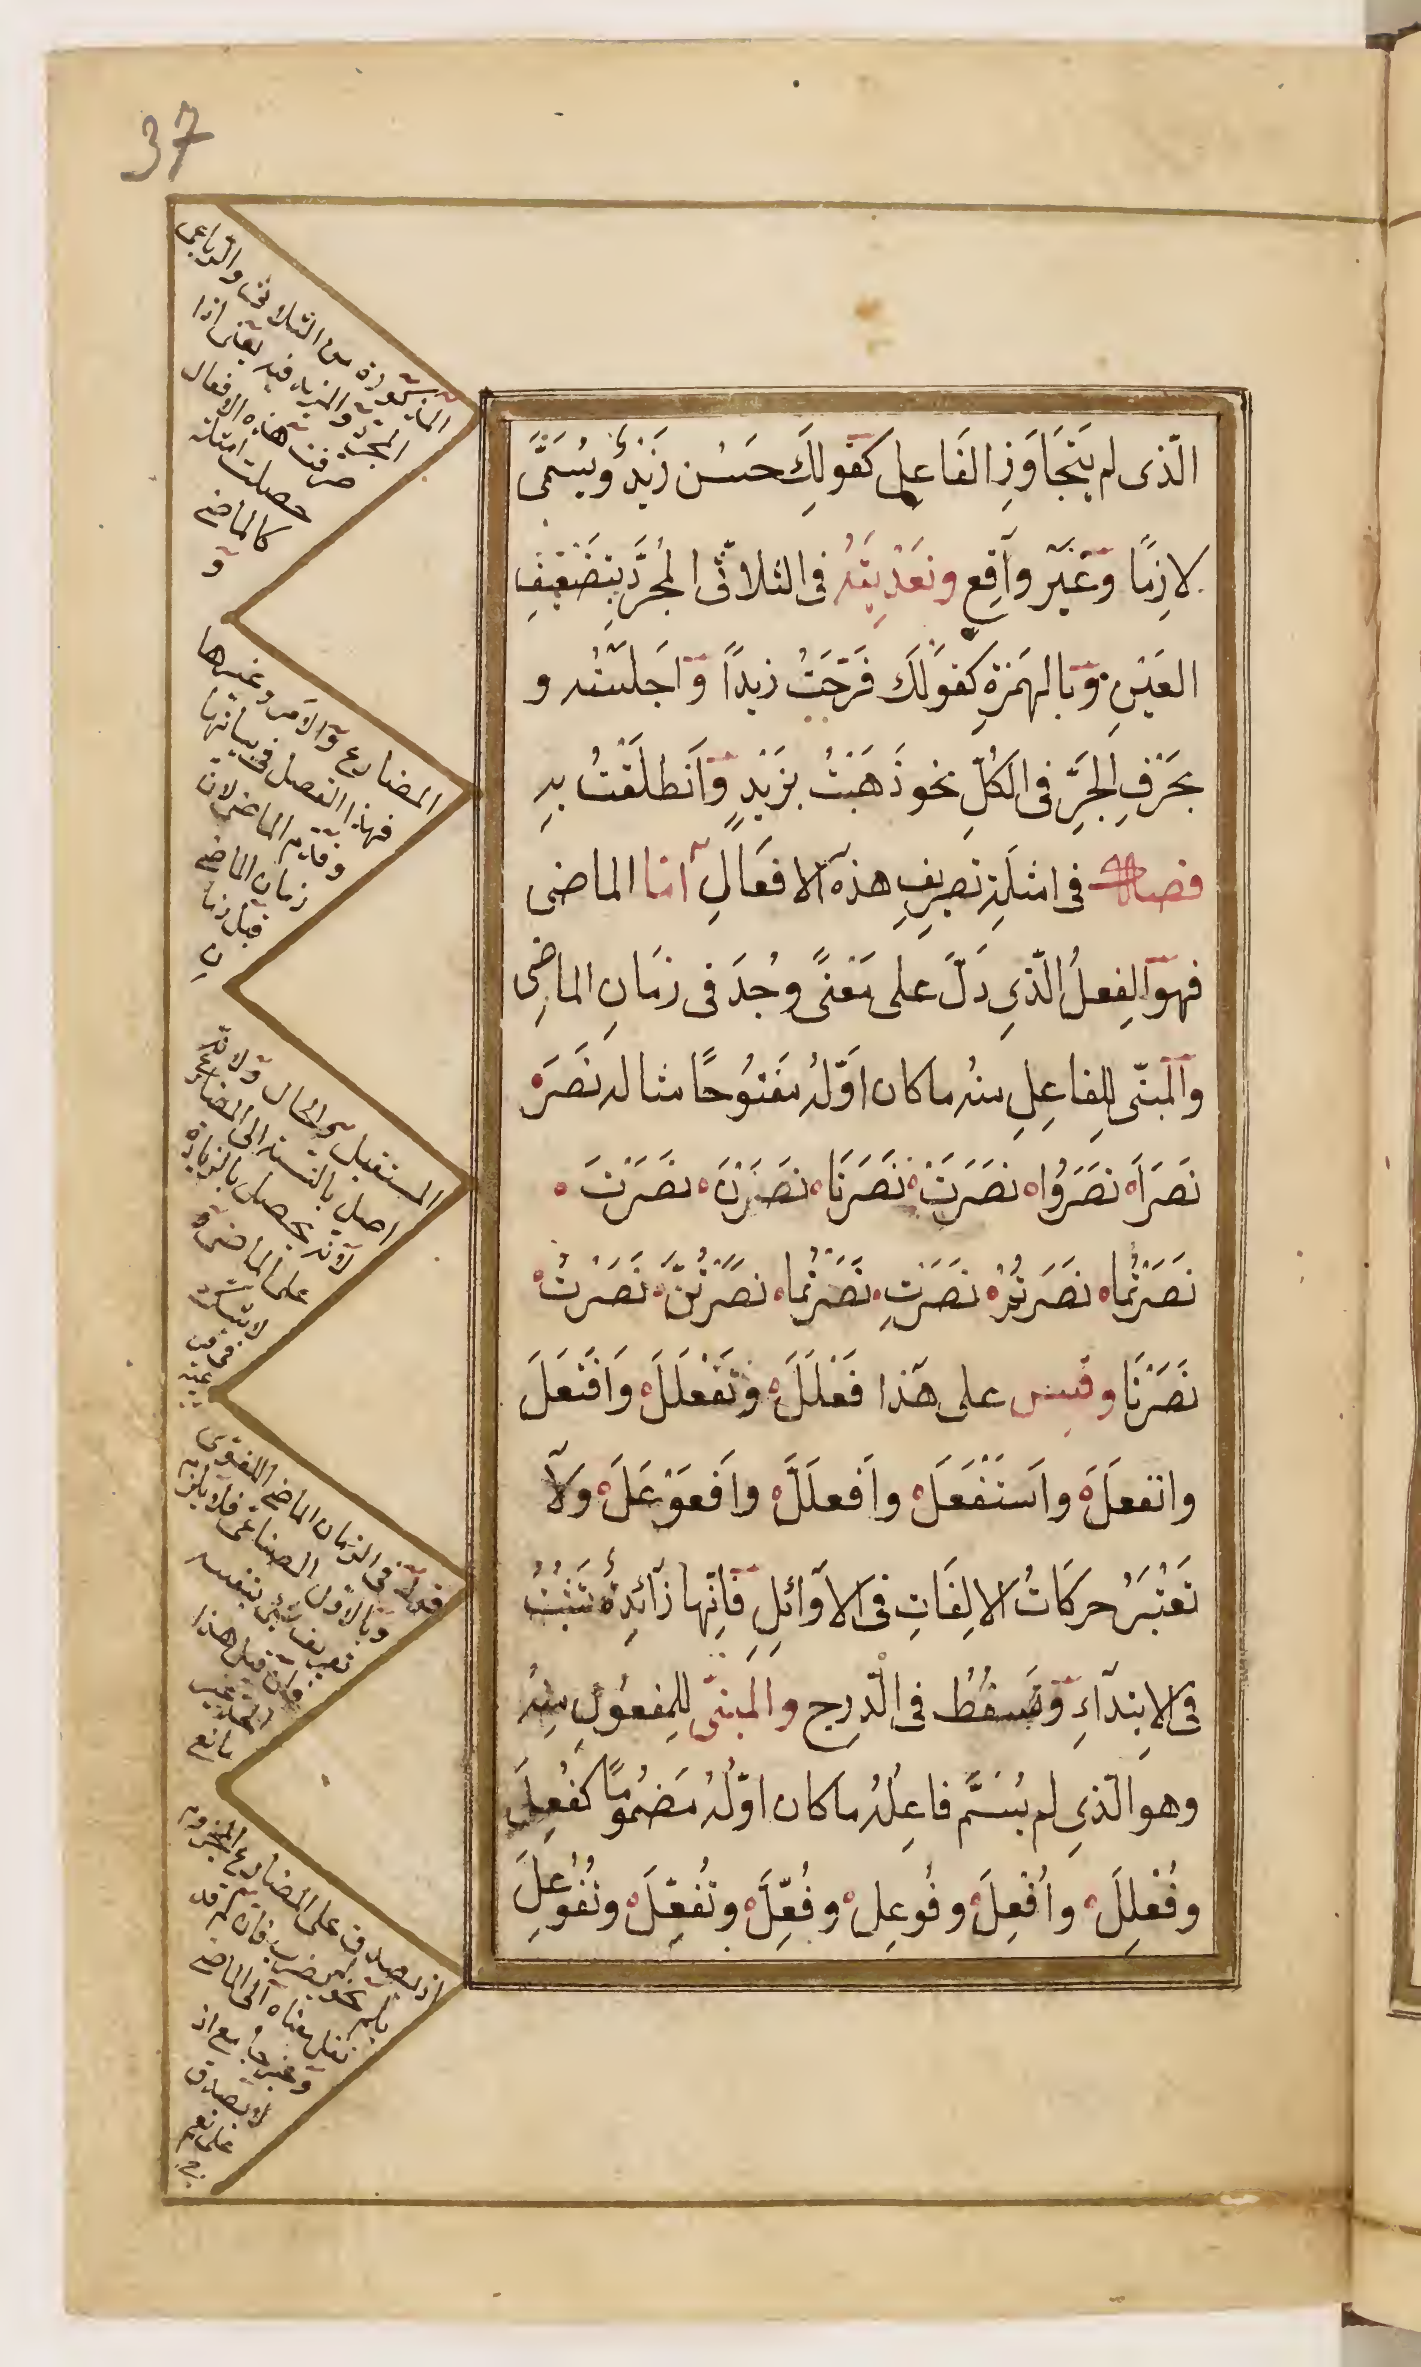 37
الّذى لم يَتَجَاوَزِ الفَاعِلَ كَقَولِكَ حَسُنَ زَيْدٌ وَيُسَمَّى
لازِمًا وَغَيْرَ واقِعٍ وتَعْدِيَتُهُ فى الثلاثّى المُجَرَّدِ بِتَضْعِيفِ
العَيْنِ وَبالهَمْزَةِ كَقَولِكَ فَرَّحْتُ زيدًا وَاَجلَسْتُه و
بِحَرْفِ الجَرِّ فى الكُلِّ نحو ذَهَبْتُ بِزَيْدٍ وَانْطَلَقْتُ بِهِ
فصل فى امثلَةِ تصرِيفِ هذه الافعَالِ امّا الماضى
فهوَ الفِعلُ الّذِى دَلَّ على مَعْنًى وُجِدَ فى زمَانِ الماضِى
والمَبنّى لِلفاعِلِ منهُ ما كان اوَّلُهُ مَفتُوحًا مثاله نَصَرَ
نَصَرَا نَصَرُوا نَصَرَتْ نَصَرَتَا نَصَرْنَ نَصَرْتَ
نَصَرْتُما نَصَرْتُمْ نَصَرْتِ نَصَرْتُما نَصَرْتُنَّ نَصَرْتُ
نَصَرْنَا وقِس على هَذا فَعْلَلَ وَتَفَعْلَلَ وَافْتَعَلَ
وانفعَلَ واَستَفْعَلَ واَفعلَلَّ واَفعَوْعَلَ وَلاَ
تَعْتَبِرْ حركَاتُ الالِفَاتِ فى الاَوائلِ فَاِنّها زَائِدةٌ تَثْبُتُ
فى الابتِداءِ وَتَسقُطُ فى الدّرج والمَبنّى لِلمفعُولِ مِنهُ
وهو الّذِى لم يُسَمَّ فاعِلُهُ ما كان اوّلُهُ مَضمُومًا كَفُعِلَ
وفُعْلِلَ واُفْعِلَ وفُوعِلَ وفُعِّلَ وتُفُعِّلَ وتُفُوعِلَ
المذكورة من الثلاثى والرّباعى
المجرد والمزيد فيه يعنى اذا
صرفت هذه الافعال
حصلت امثلة
كالماضى
و
المضارع والامر وغيرها
فهذا الفصل فى بيانها
وقدّم الماضى لانّ
زمان الماضى
قبل زما
ن
المستقبل والحال ولانّه
اصل بالنسبة الى المضارع
لانّه يحصل بالزيادة
على الماضى
قوله فى الزمان الماضى اللغوى
وبالاوّل الصناعى فلا يلزم
تعريف الشئ بنفسه
فان قيل هذا
الحد غير
مانع
اذ يصدق على المضارع المجزوم
بلم نحو لم يضرب فانّ لم قد
نقل معناه الى الماضى
وغير جامع اذ
لا يصدق
على نعم